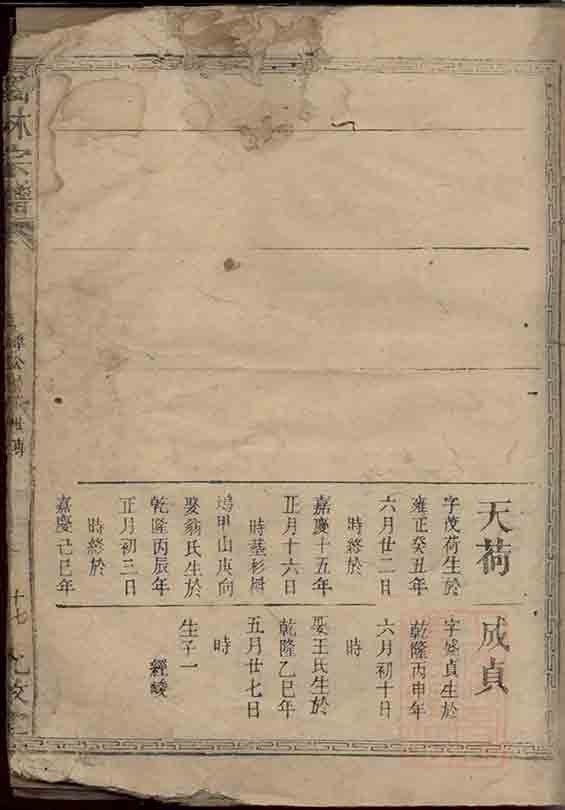 天荷
字茂荷生於
雍正癸丑年
六月廿二日
時終於
嘉慶十五年
正月十六日
時塟杉樹
塢甲山庚向
娶翁氏生於
乾隆丙辰年
正月初三日
時終於
嘉慶己巳年
成貞
字盛貞生於
乾隆丙申年
六月初十日
時
娶王氏生於
乾隆乙巳年
五月廿七日
時
生子一
經峻
林宗譜
十七